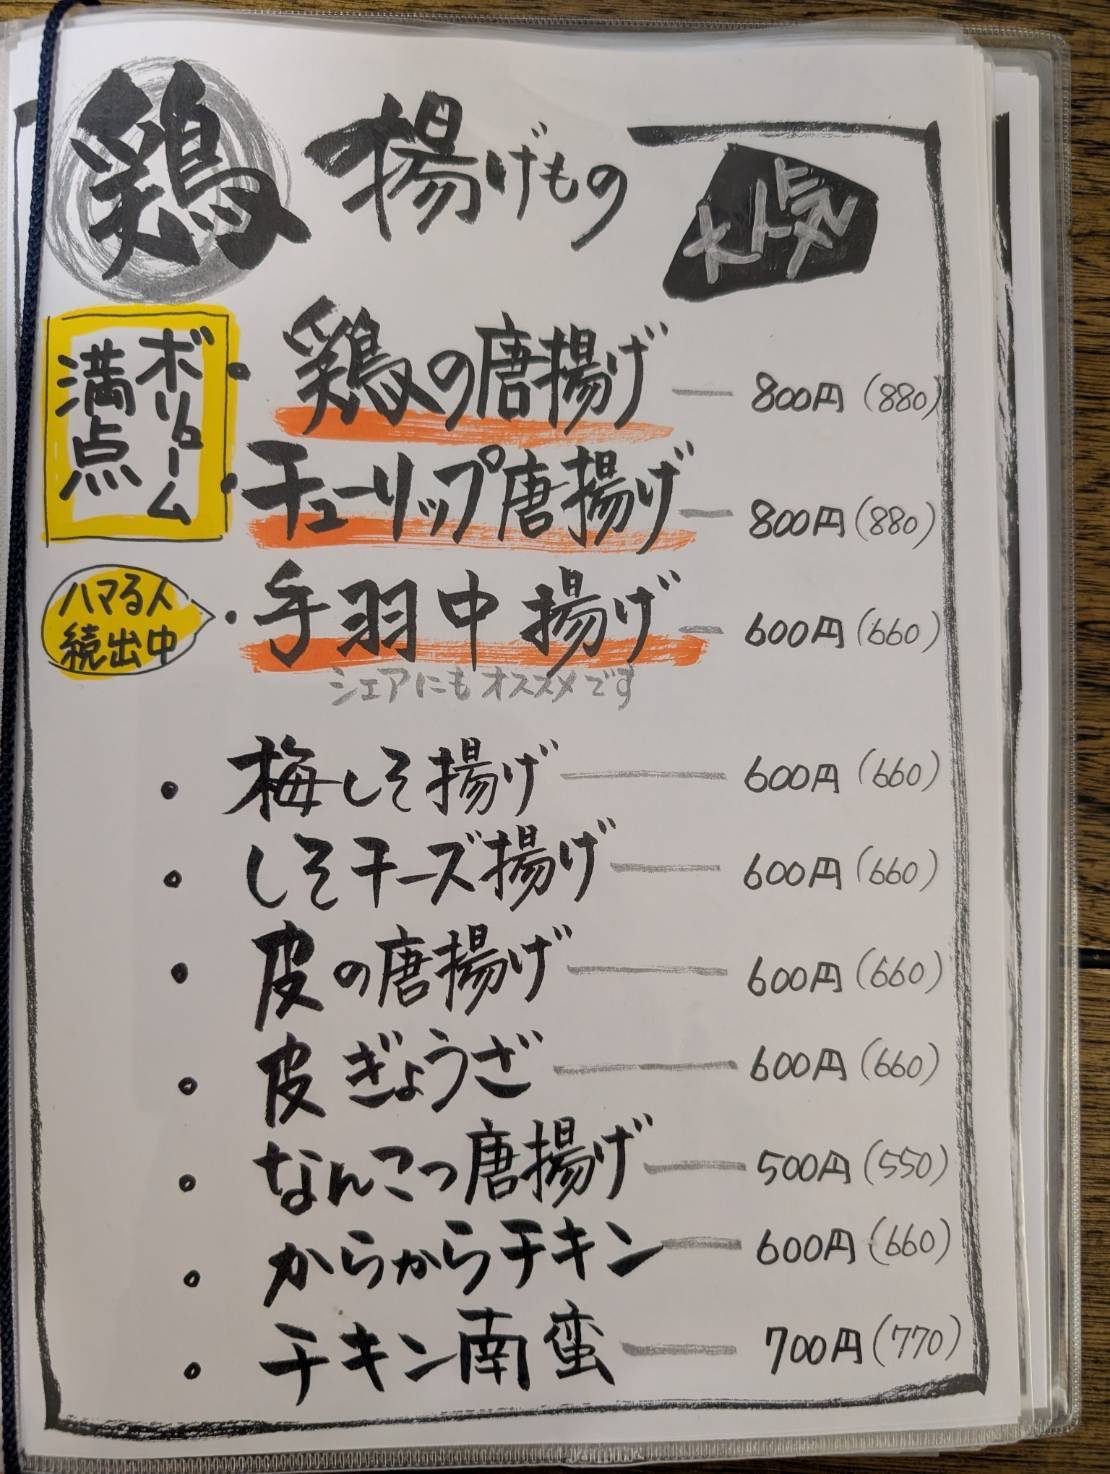 鶏 揚げもの
大人気
ボリューム
満点
・鶏の唐揚げ — 800円(880)
・チューリップ唐揚げ — 800円(880)
ハマる人
続出中
・手羽中揚げ — 600円(660)
シェアにもオススメです
・梅しそ揚げ — 600円(660)
・しそチーズ揚げ — 600円(660)
・皮の唐揚げ — 600円(660)
・皮ぎょうざ — 600円(660)
・なんこつ唐揚げ — 500円(550)
・からからチキン — 600円(660)
・チキン南蛮 — 700円(770)